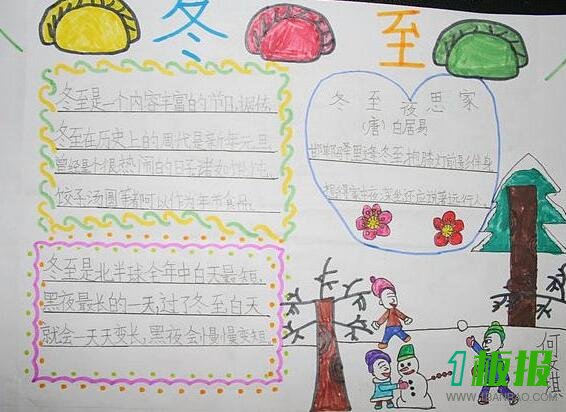 冬至
冬至是一个内容丰富的节日,据传,
冬至在历史上的周代是新年元旦,
曾经是个很热闹的日子,诸如馄饨、
饺子、汤圆等都可以作为年节食品。
冬至夜思家
(唐)白居易
邯郸驿里逢冬至抱膝灯前影伴身
想得家中夜深坐还应说着远行人。
冬至是北半球全年中白天最短,
黑夜最长的一天,过了冬至白天
就会一天天变长,黑夜会慢慢变短,
何
1板报
WWW.1BANBAO.COM